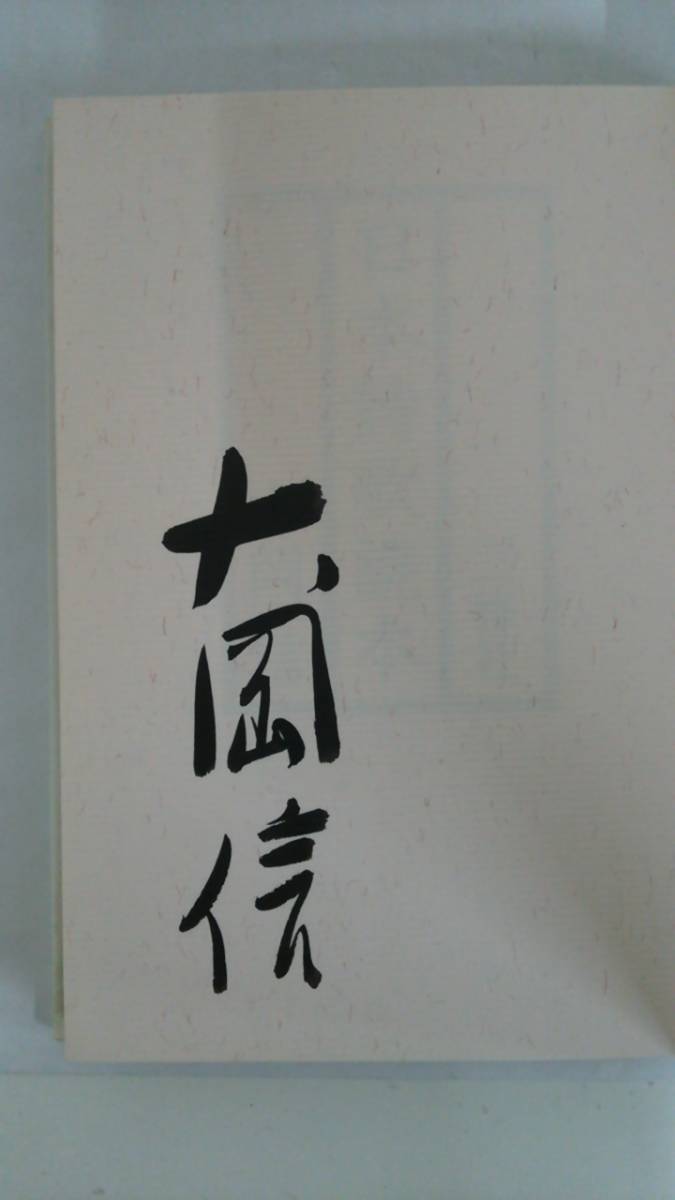 大岡信